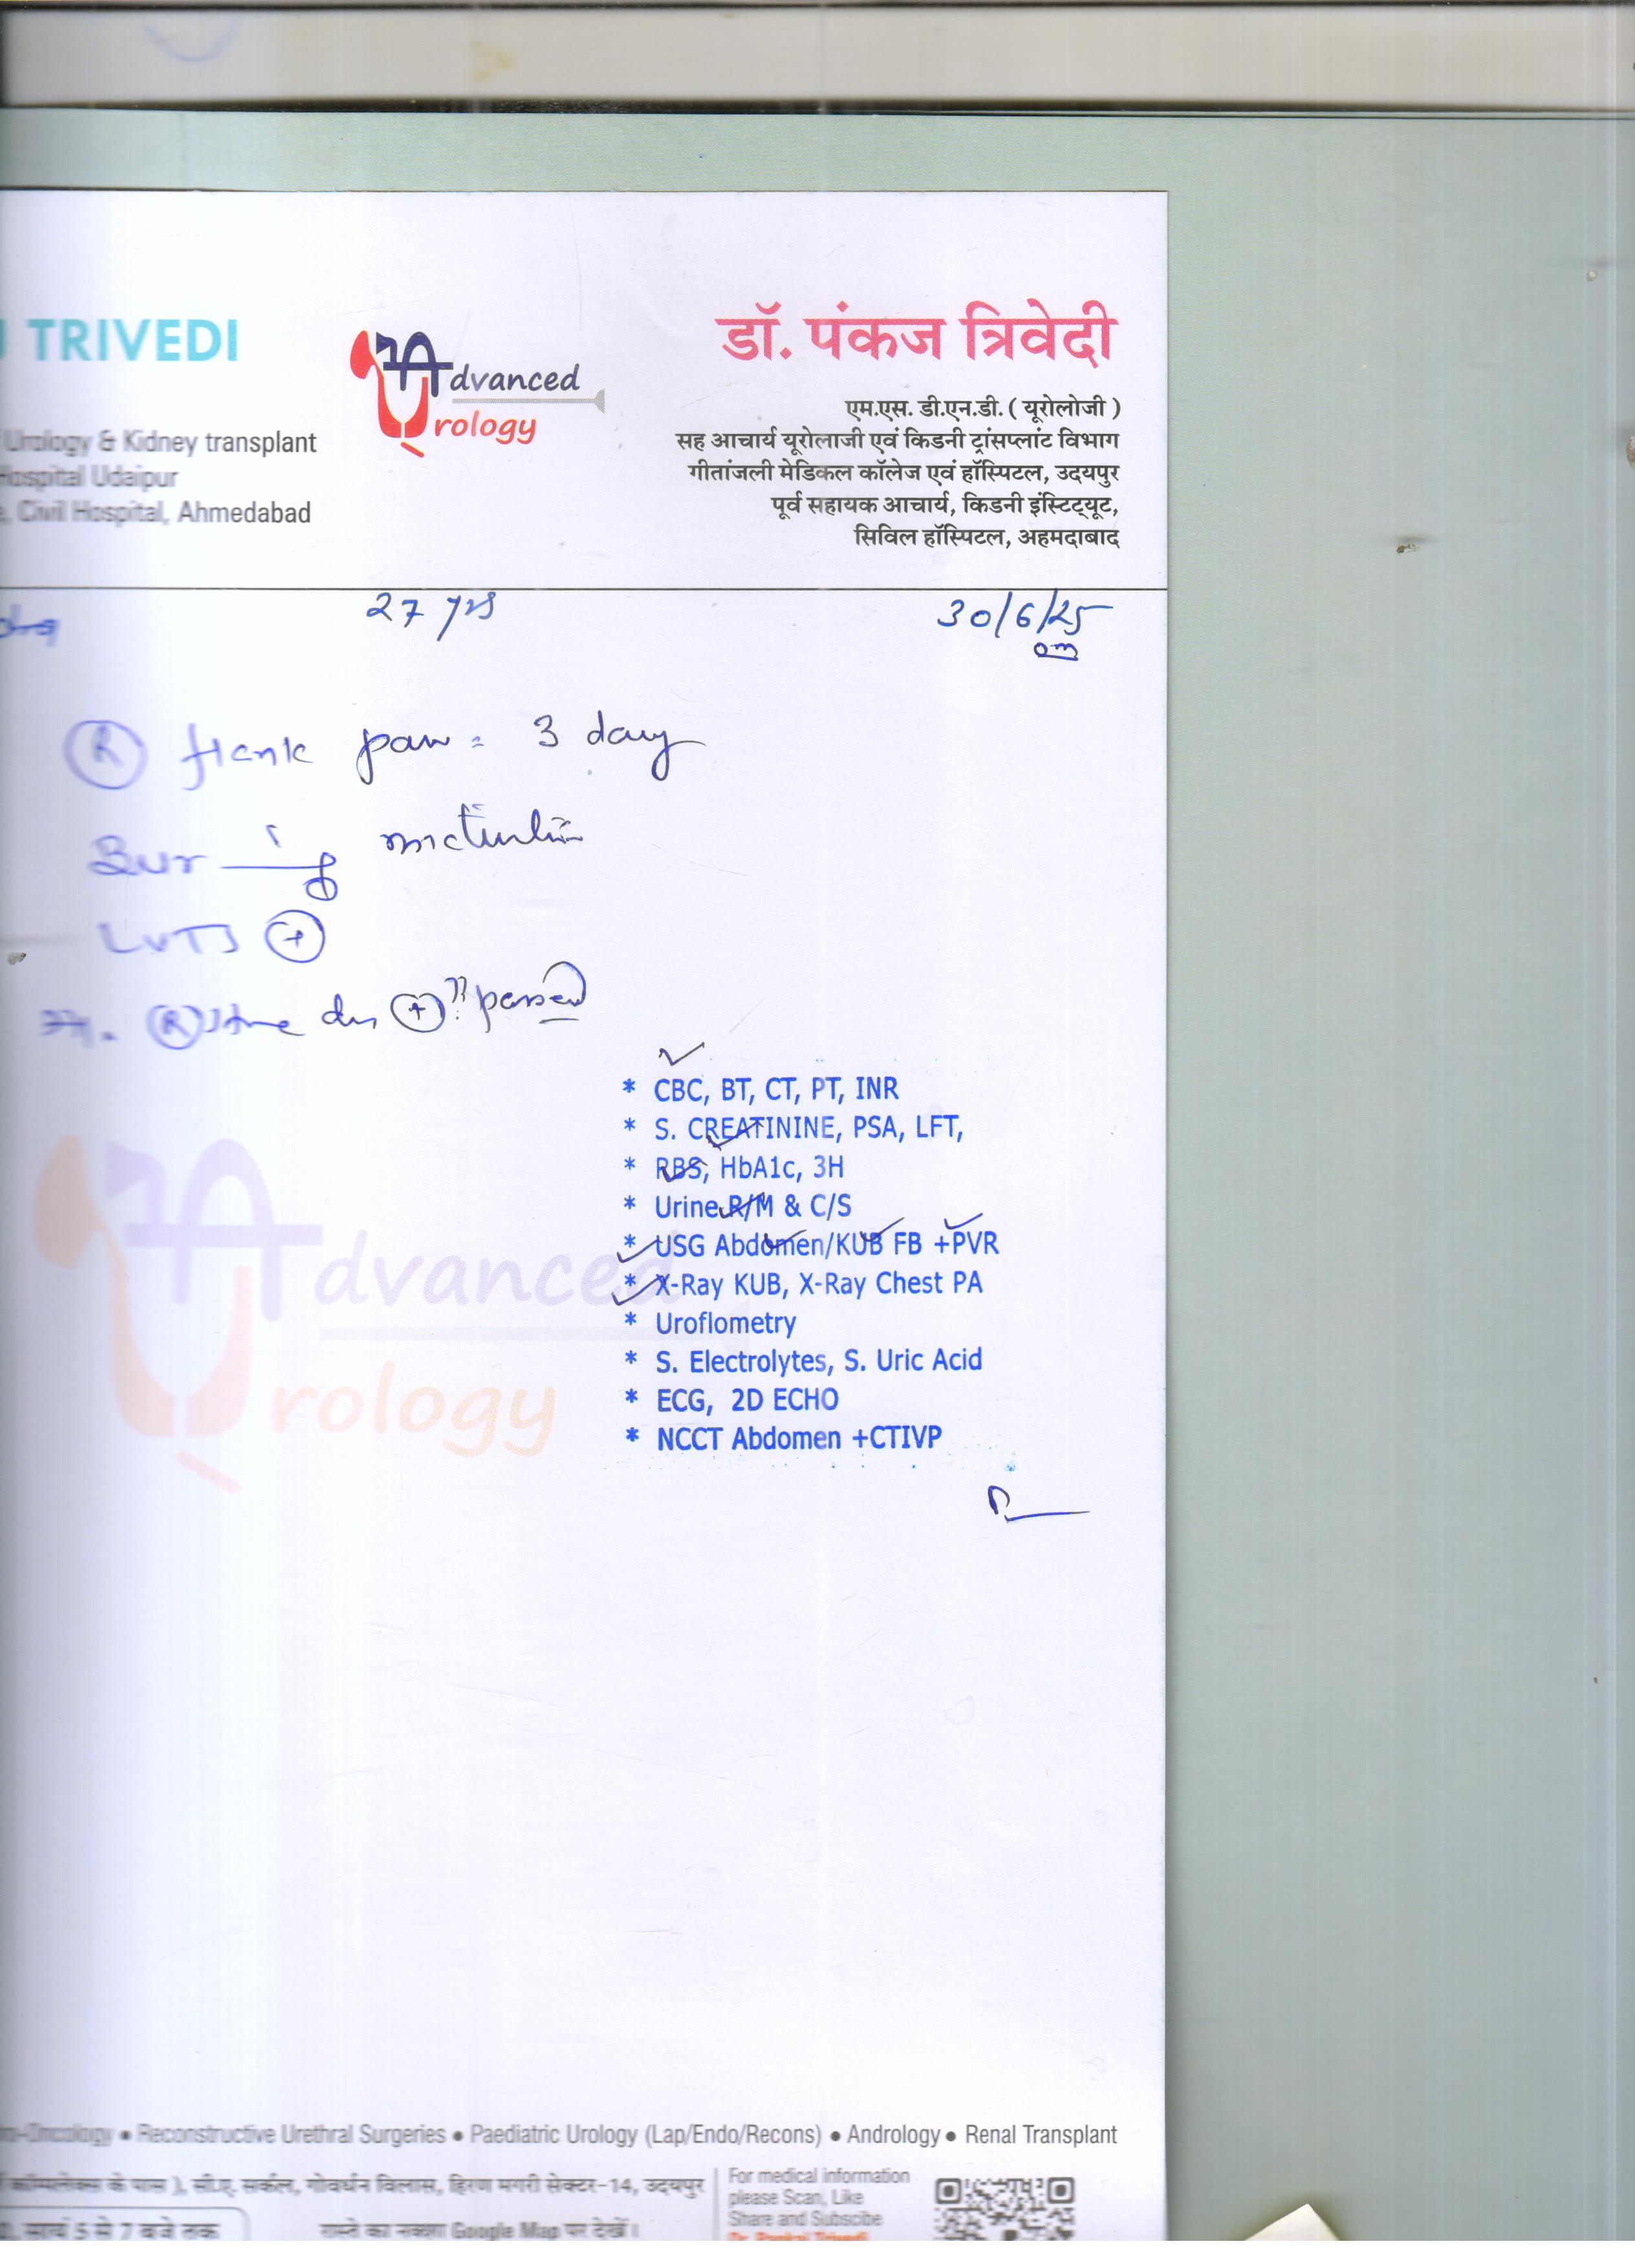 TRIVEDI
Advanced
Urology
डॉ. पंकज त्रिवेदी
Urology & Kidney transplant
Hospital Udaipur
Civil Hospital, Ahmedabad
एम.एस. डी.एन.डी. ( यूरोलोजी )
सह आचार्य यूरोलाजी एवं किडनी ट्रांसप्लांट विभाग
गीतांजली मेडिकल कॉलेज एवं हॉस्पिटल, उदयपुर
पूर्व सहायक आचार्य, किडनी इंस्टिट्यूट,
सिविल हॉस्पिटल, अहमदाबाद
27 yrs 30/6/25
R flank pain = 3 day
Burning micturition
LUTS +
R stone +?? passed
* CBC, BT, CT, PT, INR
* S. CREATININE, PSA, LFT,
* RBS, HbA1c, 3H
* Urine R/M & C/S
* USG Abdomen/KUB FB +PVR
* X-Ray KUB, X-Ray Chest PA
* Uroflometry
* S. Electrolytes, S. Uric Acid
* ECG, 2D ECHO
* NCCT Abdomen +CTIVP
Advanced
Urology
Oncology • Reconstructive Urethral Surgeries • Paediatric Urology (Lap/Endo/Recons) • Andrology • Renal Transplant
कॉम्पलेक्स के पास ), सी.ए. सर्कल, गोवर्धन विलास, हिरण मगरी सेक्टर-14, उदयपुर
सायं 5 से 7 बजे तक
रास्ते का नक्शा Google Map पर देखें।
For medical information
please Scan, Like
Share and Subscibe
Dr. Pankaj Trivedi